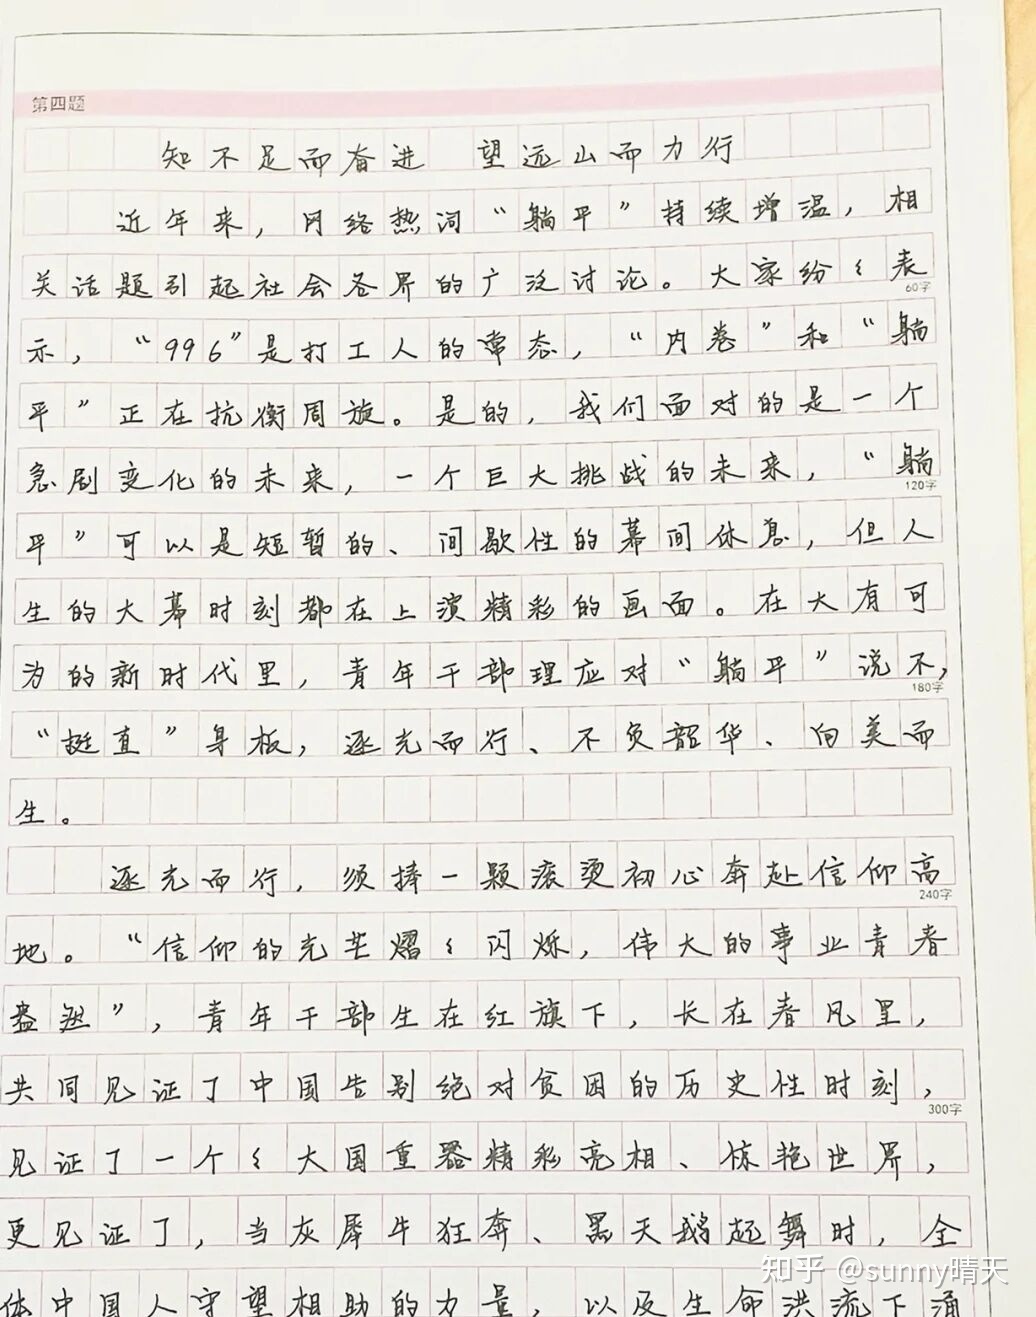 第四题
知不足而奋进 望远山而力行
近年来，网络热词“躺平”持续增温，相
关话题引起社会各界的广泛讨论。大家纷々表
60字
示，“996”是打工人的常态，“内卷”和“躺
平”正在抗衡周旋。是的，我们面对的是一个
急剧变化的未来，一个巨大挑战的未来，“躺
120字
平”可以是短暂的、间歇性的幕间休息，但人
生的大幕时刻都在上演精彩的画面。在大有可
为的新时代里，青年干部理应对“躺平”说不，
180字
“挺直”身板，逐光而行、不负韶华、向美而
生。
逐光而行，须捧一颗滚烫初心奔赴信仰高
240字
地。“信仰的光芒熠々闪烁，伟大的事业青春
盎然”，青年干部生在红旗下，长在春风里，
共同见证了中国告别绝对贫困的历史性时刻，
300字
见证了一个々大国重器精彩亮相、惊艳世界，
更见证了，当灰犀牛狂奔、黑天鹅起舞时，全
体中国人守望相助的力量，以及生命洪流下涌
知乎 @sunny晴天